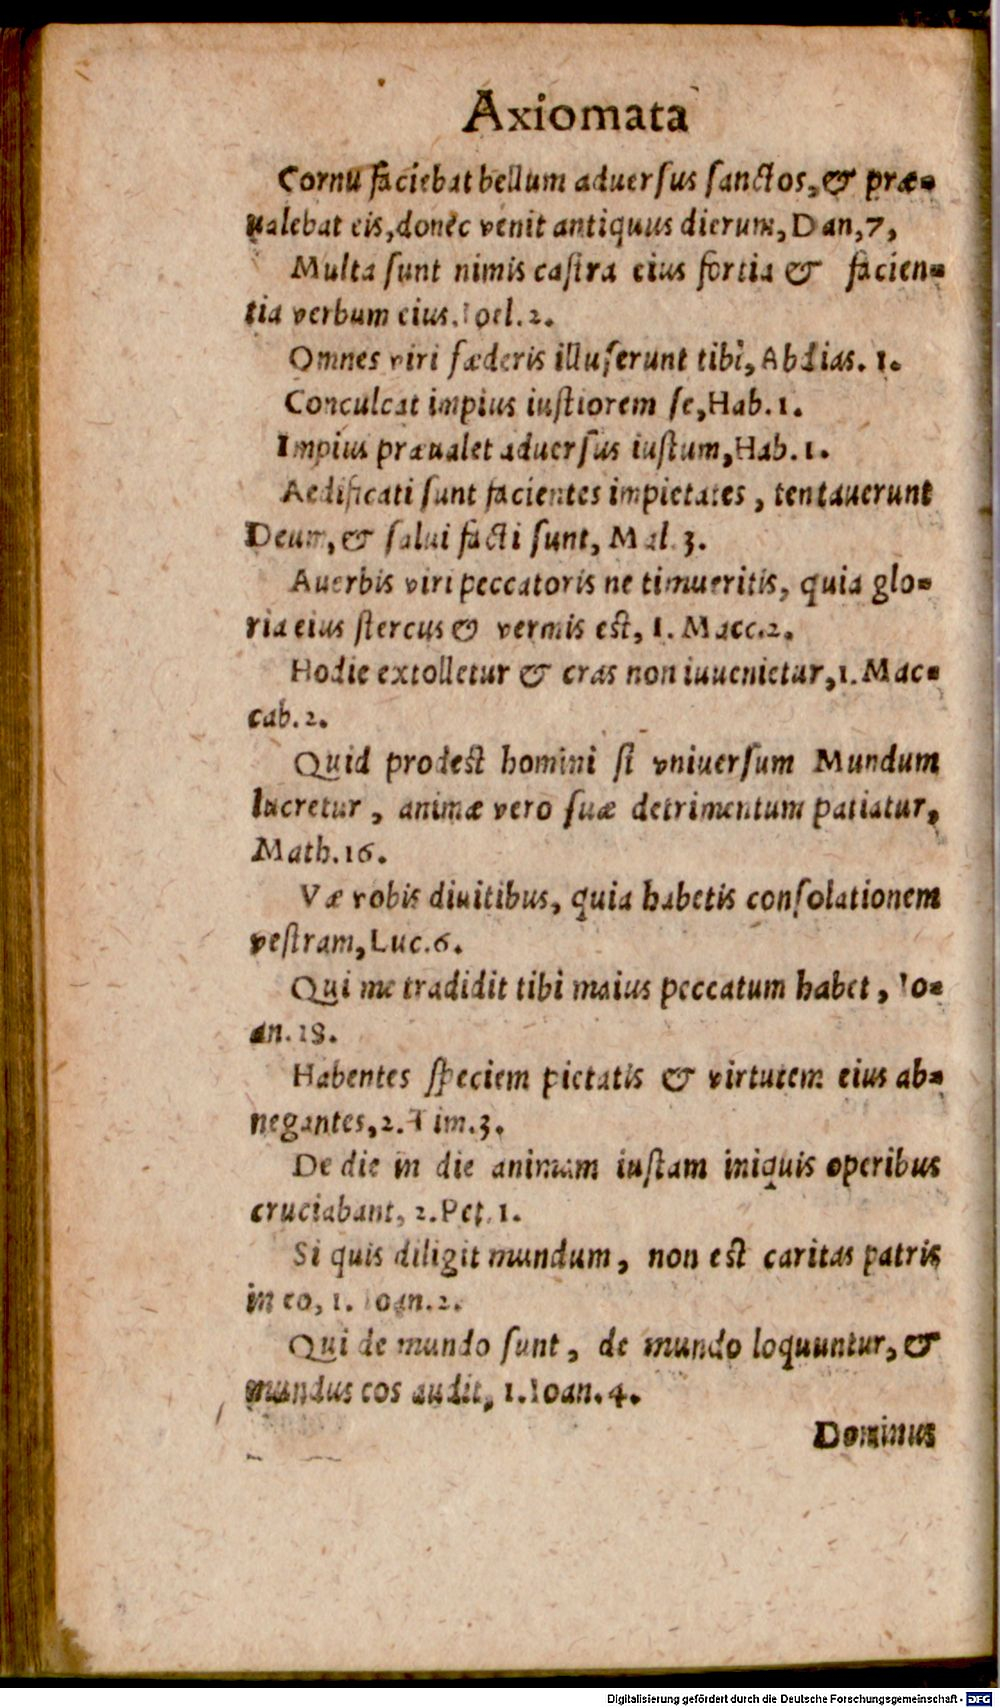 Axiomata
Cornu faciebat bellum aduersus sanctos, & præ-
ualebat eis, donec venit antiquus dierum, Dan, 7,
Multa sunt nimis castra eius fortia & facien-
tia verbum eius. Ioel. 2.
Omnes viri fœderis illuserunt tibi, Abdias. 1.
Conculcat impius iustiorem se, Hab. 1.
Impius præualet aduersus iustum, Hab. 1.
Aedificati sunt facientes impietates, tentauerunt
Deum, & salui facti sunt, Mal. 3.
A verbis viri peccatoris ne timueritis, quia glo-
ria eius stercus & vermis est, 1. Macc. 2.
Hodie extolletur & cras non iuuenietur, 1. Mac-
cab. 2.
Quid prodest homini si vniuersum Mundum
lucretur, animæ vero suæ detrimentum patiatur,
Math. 16.
Væ vobis diuitibus, quia habetis consolationem
vestram, Luc. 6.
Qui me tradidit tibi maius peccatum habet, Io-
an. 18.
Habentes speciem pietatis & virtutem eius ab-
negantes, 2. Tim. 3.
De die in die animam iustam iniquis operibus
cruciabant, 2. Pet. 1.
Si quis diligit mundum, non est caritas patris
in eo, 1. Ioan. 2.
Qui de mundo sunt, de mundo loquuntur, &
mundus eos audit, 1. Ioan. 4.
Dominus
Digitalisierung gefördert durch die Deutsche Forschungsgemeinschaft - DFG